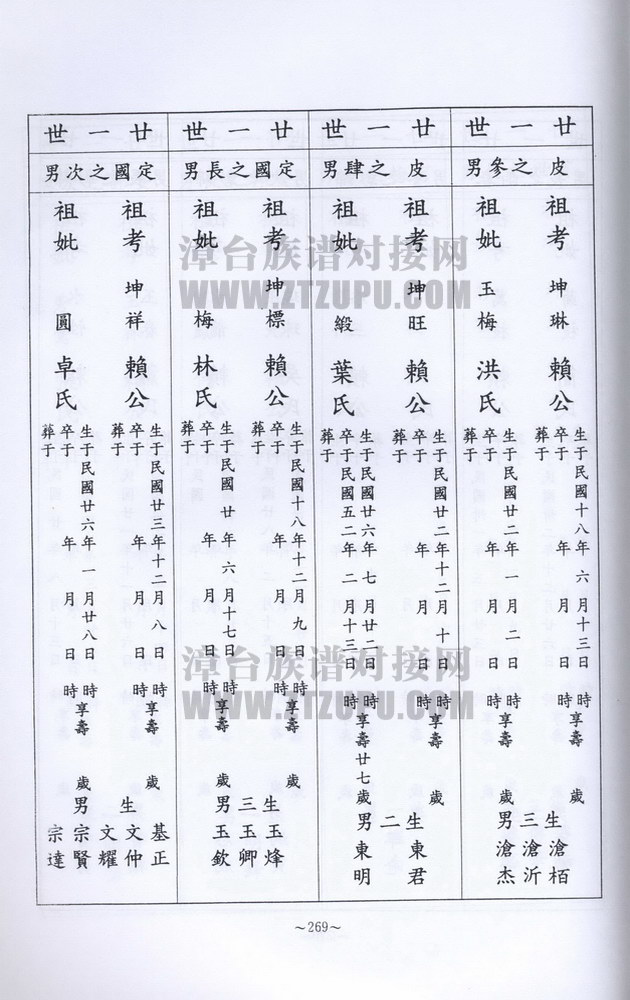 廿一世
皮之參男
祖考 坤琳 賴公
生于民國十八年六月十三日 時享壽 歲
卒于 年 月 日 時
葬于
祖妣 玉梅 洪氏
生于民國廿二年一月二日 時享壽 歲
卒于 年 月 日 時
葬于
生三男
滄栢
滄沂
滄杰
廿一世
皮之肆男
祖考 坤旺 賴公
生于民國廿二年十二月十日 時享壽 歲
卒于 年 月 日 時
葬于
祖妣 緞 葉氏
生于民國廿六年七月廿二日 時享壽廿七歲
卒于民國五二年二月十三日 時
葬于
生二男
東君
東明
廿一世
定國之長男
祖考 坤標 賴公
生于民國十八年十二月九日 時享壽 歲
卒于 年 月 日 時
葬于
祖妣 梅 林氏
生于民國廿年六月十七日 時享壽 歲
卒于 年 月 日 時
葬于
生三男
玉烽
玉卿
玉欽
廿一世
定國之次男
祖考 坤祥 賴公
生于民國廿三年十二月八日 時享壽 歲
卒于 年 月 日 時
葬于
祖妣 圓 卓氏
生于民國廿六年一月廿八日 時享壽 歲
卒于 年 月 日 時
葬于
生 男
基正
文仲
文耀
宗賢
宗達
~269~
漳台族谱对接网
WWW.ZTZUPU.COM
漳台族谱对接网
WWW.ZTZUPU.COM